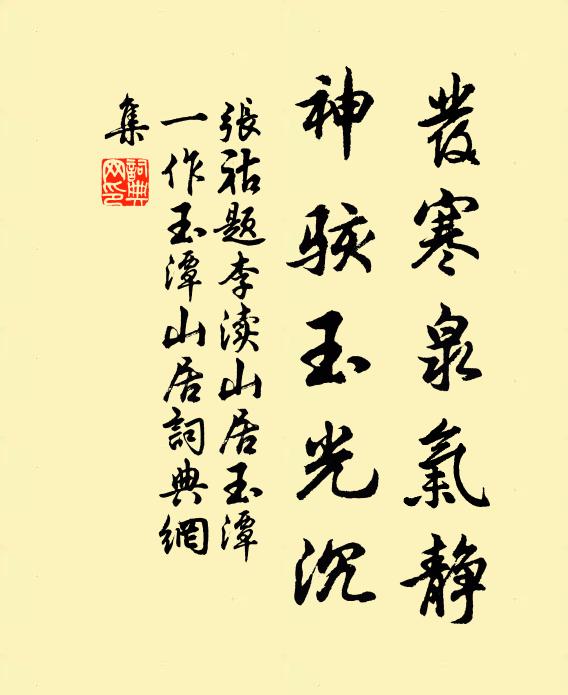 發寒泉氣靜
神駭玉光沉
張祜题李渎山居玉潭
一作玉潭山居詞典網
集
詞典
网印